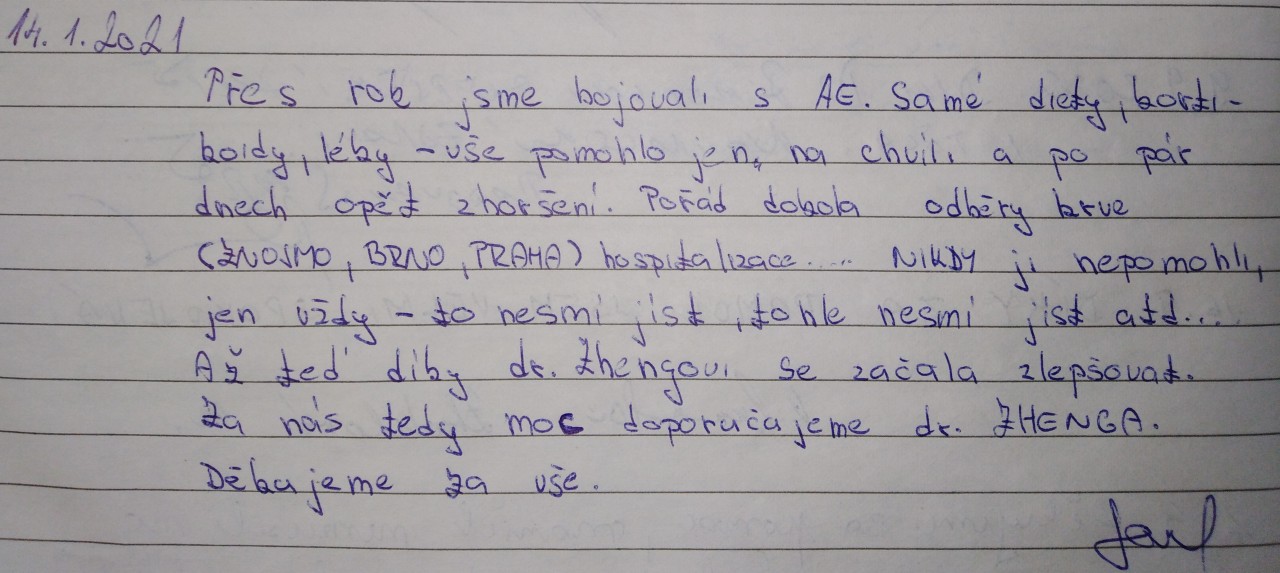 14.1.2021
Přes rok jsme bojovali s AE. Samé diety, korti-
koidy, léky - vše pomohlo jen, na chvíli a po pár
dnech opět zhoršení. Pořád dokola odběry krve
(ZNOJMO, BRNO, PRAHA) hospitalizace..... NIKDY jí nepomohli,
jen vždy - to nesmí jíst, tohle nesmí jíst atd...
Až teď díky dr. Zhengovi se začala zlepšovat.
Za nás tedy moc doporučajeme dr. ZHENGA.
Děkujeme za vše.